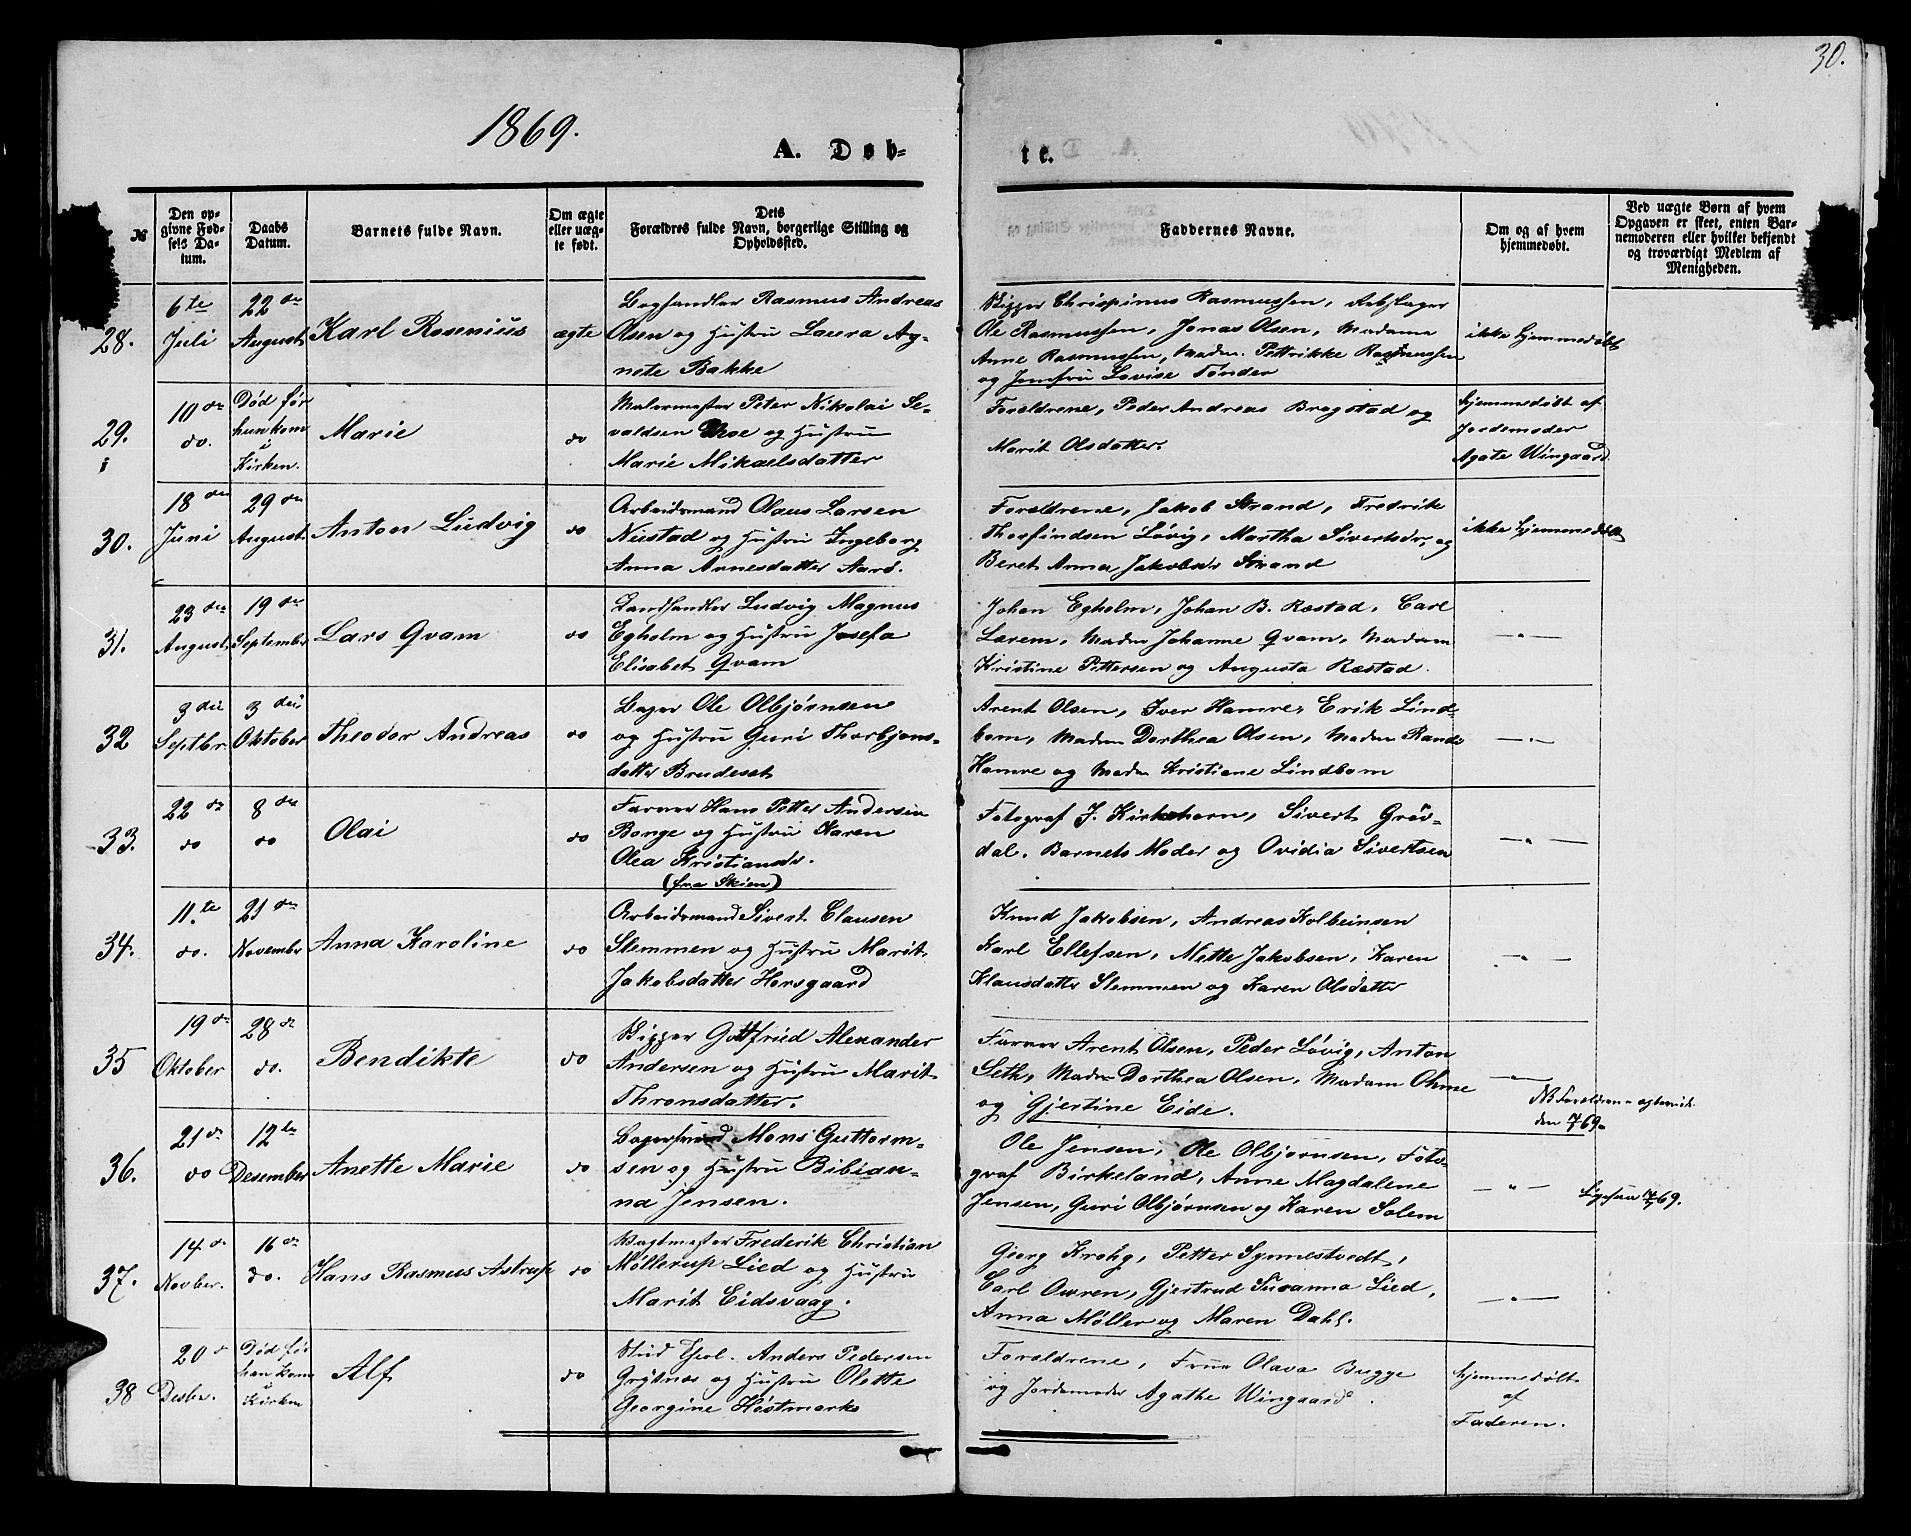 30.
1869.
A. Døb-
te.
№
Den op-
givne Fød-
sels Da-
tum.
Daabs
Datum.
Barnets fulde Navn.
Om ægte
eller uæg-
te født.
Dets
Forældres fulde Navn, borgerlige Stilling og
Opholdsted.
Faddernes Navne.
Om og af hvem
hjemmedøbt.
Ved uægte Børn af hvem
Opgaven er skeet, enten Bar-
nemoderen eller hvilket bekjendt
og troværdigt Medlem af
Menigheden.
28.
6te
Juli
22de
August
Karl Rosenius
ægte
Boghandler Rasmus Andreas
Olsen og Hustru Laura Ag-
nete Bakke
Skipper Chrispinus Rasmussen,
Ole Rasmussen, Jonas Olsen, Madame
Anne Rasmussen, Madm. Pettrikke Rasmussen
og Jomfru Lovise Tønder
ikke hjemmedøbt
29.
10de
do.
Død før
hun kom
i
Kirken.
Marie
do
Malermester Peter Nikolai Se-
valdsen og Hustru
Marie Mikaelsdatter
Forældrene, Peder Andreas Brogstad og
Marit Olsdatter.
hjemmedøbt af
Jordemoder
Agate Wingaard
30.
18de
Juni
29de
August
Anton Ludvig
do
Arbeidsmand Olaus Larsen
Neustad og Hustru Ingeborg
Anna Arnesdatter Aarø.
Forældrene, Jakob Strand, Fredrik
Thorfindsen Løvig, Martha Sivertsdr, og
Beret Anna Jakobsdr Strand
ikke hjemmedøbt
31.
23de
August
19de
September
Lars Qvam
do
Landhandler Ludvig Magnus
Egholm og Hustru Josefa
Elisabet Qvam
Johan Egholm, Johan B. Ræstad, Carl
Larem, Madm Johanne Qvam, Madam
Kristine Pettersen og Augusta Ræstad.
— " —
32
3die
Septbr.
3die
Oktober
Theodor Andreas
do
Bager Ole Olbjørnsen
og Hustru Guri Thorbjøns-
datter Brudeset
Arent Olsen, Iver Hamre, Erik Lind-
bom, Madm Dorthea Olsen, Madm Randi
Hamre og Madm Kristiane Lindbom
— " —
33.
22de
do
8de
do
Olai
do
Farver Hans Petter Andersen
Bonge og Hustru Karen
Olea Kristiansdr.
(fra Skien)
Fotograf J. Kirkehorn, Sivert Grøv-
dal. Barnets Moder og Ovidia Sivertsen
— " —
34.
11.te
do.
21de
November
Anna Karoline
do
Arbeidsmand Sivert Clausen
Slemmen og Hustru Marit
Jakobsdatter Horsgaard
Knud Jakobsen, Andreas Kolbeinsen
Karl Ellefsen, Mette Jakobsen, Karen
Klausdatter Slemmen og Karen Olsdatter
— " —
35
19de
Oktober
28de
do.
Bendikte
do
Skipper Gottfried Alexander
Andersen og Hustru Marit
Thronsdatter.
Farver Arent Olsen, Peder Løvig, Anton
Seth, Madm Dorthea Olsen, Madam Ohme
og Gjertine Eide.
— " —
NB Forældrene
den 69.
36.
21de
do
12te
Desember
Anette Marie
do
Bagersvend Mons Guttorm-
sen og Hustru Bibian-
na Jensen.
Ole Jensen, Ole Olbjørnsen, Foto-
graf Birkeland, Anne Magdalene
Jensen, Guri Olbjørnsen og Karen Solem
— " —
Ligesaa 69.
37.
14de
Novber.
16de
do.
Hans Rasmus Astrup
do
Vagtmester Frederik Christian
Møllerup Lied og Hustru
Marit Eidsvaag.
Georg Krohg, Petter Synnestvedt,
Carl Owren, Gjertrud Susanna Lied,
Anna Møller og Maren Dahl.
— " —
38
20de
Desbr.
Død før
han kom
i
Kirken
Alf
do
Stud theol. Anders Pedersen
Grytnæs og Hustru Olette
Georgine Høstmark
Forældrene, Frue Olava Bugge
og Jordemoder Agathe Wingaard.
hjemmedøbt
af
Faderen.